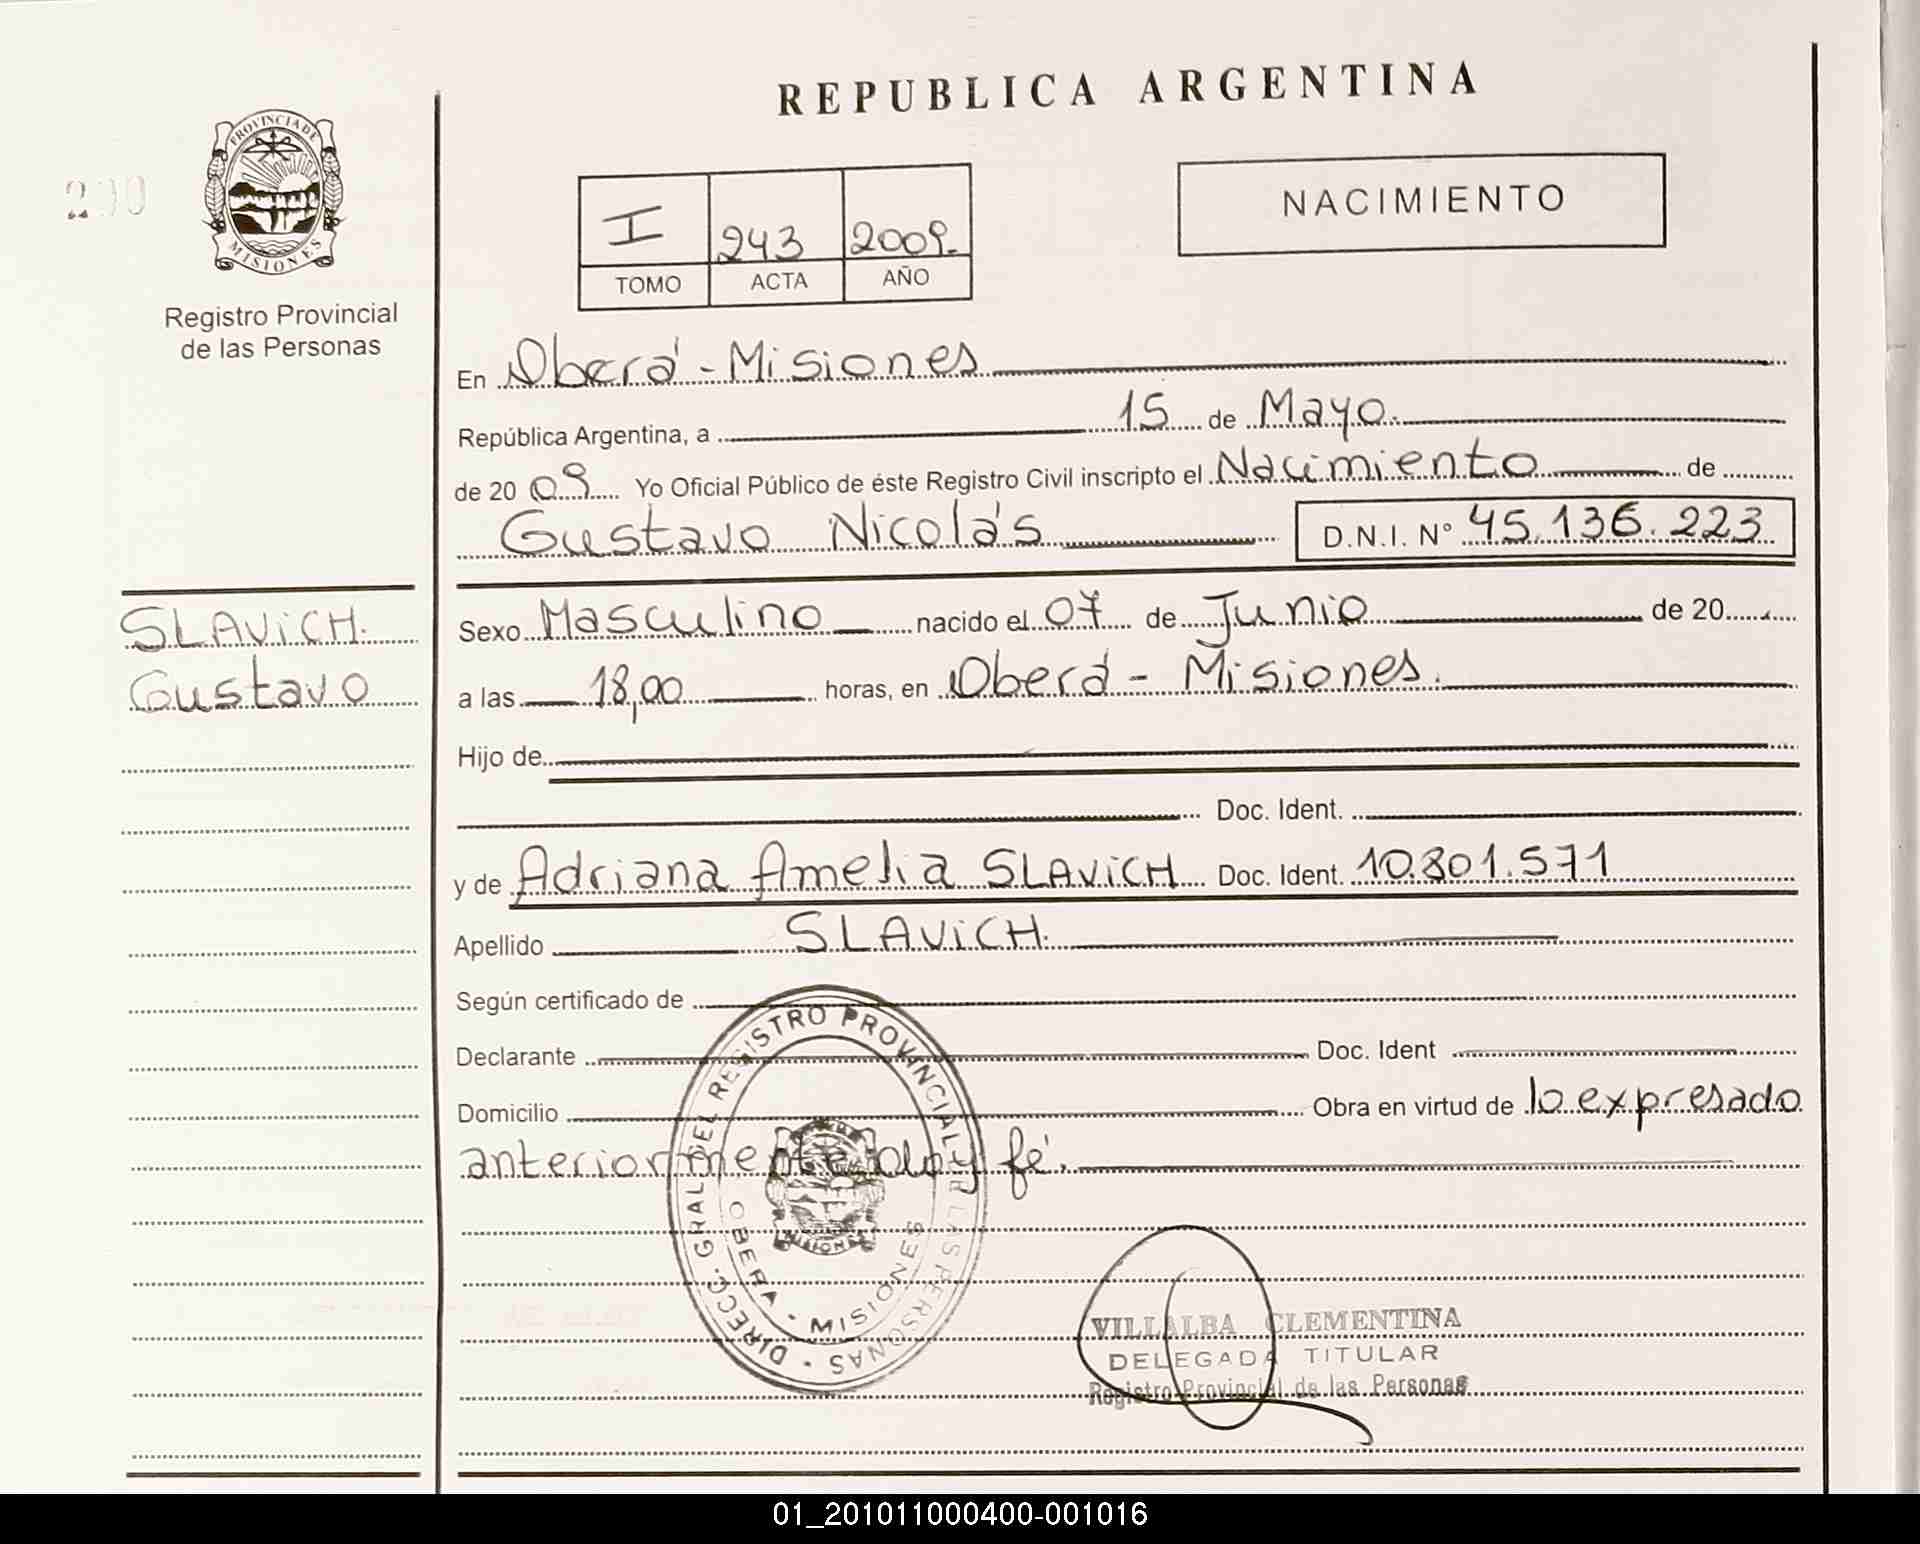 REPUBLICA ARGENTINA
PROVINCIA DE
MISIONES
Registro Provincial
de las Personas
NACIMIENTO
I 243 2009.
TOMO ACTA AÑO
En Oberá - Misiones
República Argentina, a 15 de Mayo.
de 20 09 Yo Oficial Público de éste Registro Civil inscripto el Nacimiento de
Gustavo Nicolás D.N.I. Nº 45.136.223
SLAViCH.
Gustavo
Sexo Masculino nacido el 07 de Junio de 20
a las 18,00 horas, en Oberá - Misiones.
Hijo de
Doc. Ident.
y de Adriana Amelia SLAViCH Doc. Ident. 10.801.571
Apellido SLAViCH.
Según certificado de
Declarante Doc. Ident
Domicilio Obra en virtud de lo expresado
anteriormente doy fé.
DIRECC. GRAL DEL REGISTRO PROVINCIAL DE LAS PERSONAS
OBERA - MISIONES
MISIONES
VILLALBA CLEMENTINA
DELEGADA TITULAR
Registro Provincial de las Personas
01_201011000400-001016